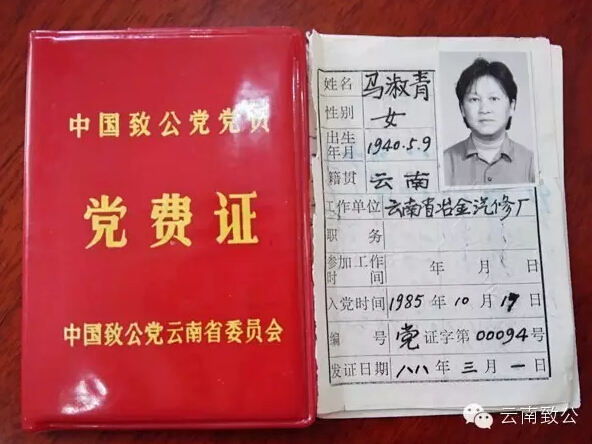 中国致公党党员
党费证
中国致公党云南省委员会
姓名 马淑青
性别 女
出生年月 1940.5.9
籍贯 云南
工作单位 云南省冶金汽修厂
职务
参加工作时间 年 月 日
入党时间 1985年10月17日
编号 党证字第00094号
发证日期 八八年三月一日
云南致公